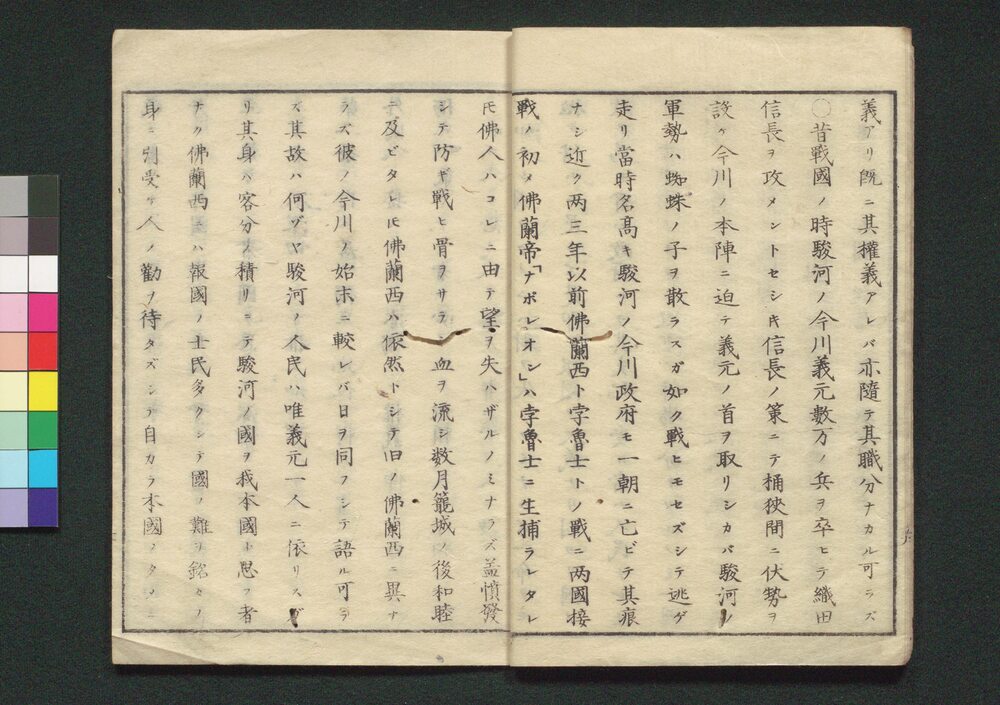 義アリ既ニ其權義アレバ亦隨テ其職分ナカル可ラズ
〇昔戰國ノ時駿河ノ今川義元數万ノ兵ヲ卒ヒテ織田
信長ヲ攻メントセシ𪜈信長ノ策ニテ桶狹間ニ伏勢ヲ
設ケ今川ノ本陣ニ迫テ義元ノ首ヲ取リシカバ駿河ノ
軍勢ハ蜘蛛ノ子ヲ散ラスガ如ク戰ヒモセズシテ逃ゲ
走リ當時名髙キ駿河ノ今川政府モ一朝ニ亡ビテ其痕
ナシ近ク兩三年以前佛蘭西ト孛魯士トノ戰ニ兩國接
戰ノ初メ佛蘭帝「ナポレオン」ハ孛魯士ニ生捕ラレタレ
𪜈佛人ハコレニ由テ望ヲ失ハザルノミナラズ益憤發
シテ防ギ戰ヒ骨ヲサラシ血ヲ流シ数月籠城ノ後和睦
ニ及ビタレ𪜈佛蘭西ハ依然トシテ旧ノ佛蘭西ニ異ナ
ラズ彼ノ今川ノ始末ニ較レバ日ヲ同フシテ語ル可ラ
ズ其故ハ何ゾヤ駿河ノ人民ハ唯義元一人ニ依リスガ
リ其身ハ客分ノ積リニテ駿河ノ國ヲ我本國ト思フ者
ナク佛蘭西ニハ報國ノ士民多クシテ國ノ難ヲ銘々ノ
身ニ引受ケ人ノ勸ヲ待タズシテ自カラ本國ノタメニ